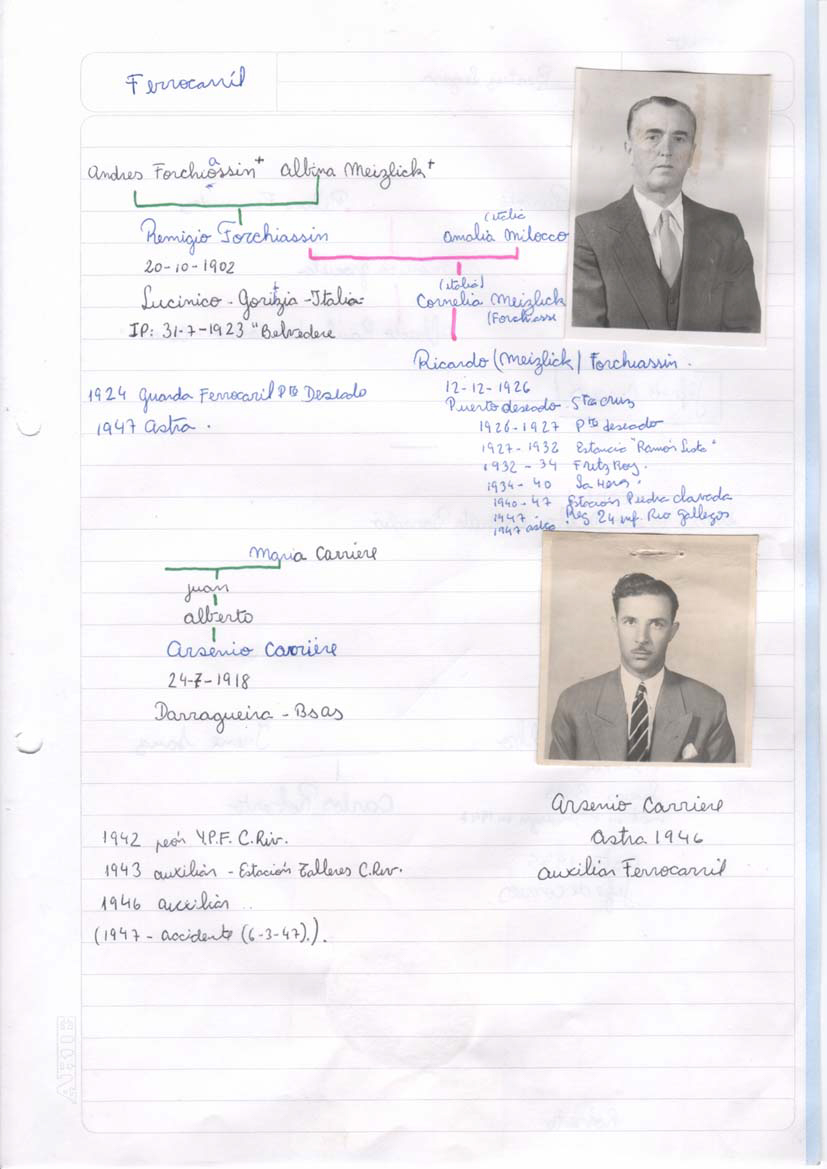 Ferrocarril
Andres Forchiassin + Albina Meizlick +
a
Remigio Forchiassin
(italia
Amalia Milocco
20-10-1902
Lucinico - Goritzia - Italia
IP: 31-7-1923 "Belvedere
(italia)
Cornelia Meizlick
(Forchiassi
Ricardo (Meizlick) Forchiassin.
12-12-1926
Puerto deseado. Sta cruz
1926-1927 Pto deseado
1927-1932 Estancia "Ramón Lista"
1932-34 Fritz Roy.
1934-40 Las Heras.
1940-47 Estación Piedra clavada
1947. Reg 24 inf. Rio Gallegos
1947 astra.
1924 Guarda Ferrocaril Pto Deseado
1947 Astra.
Maria Carriere
juan
alberto
Arsenio Carriere
24-7-1918
Darragueira - BsAs
Arsenio Carriere
Astra 1946
auxiliar Ferrocarril
1942 peón Y.P.F. C.Riv.
1943 auxiliar - Estación Talleres C.Riv.
1946 auxiliar ..
(1947 - accidente (6-3-47).).